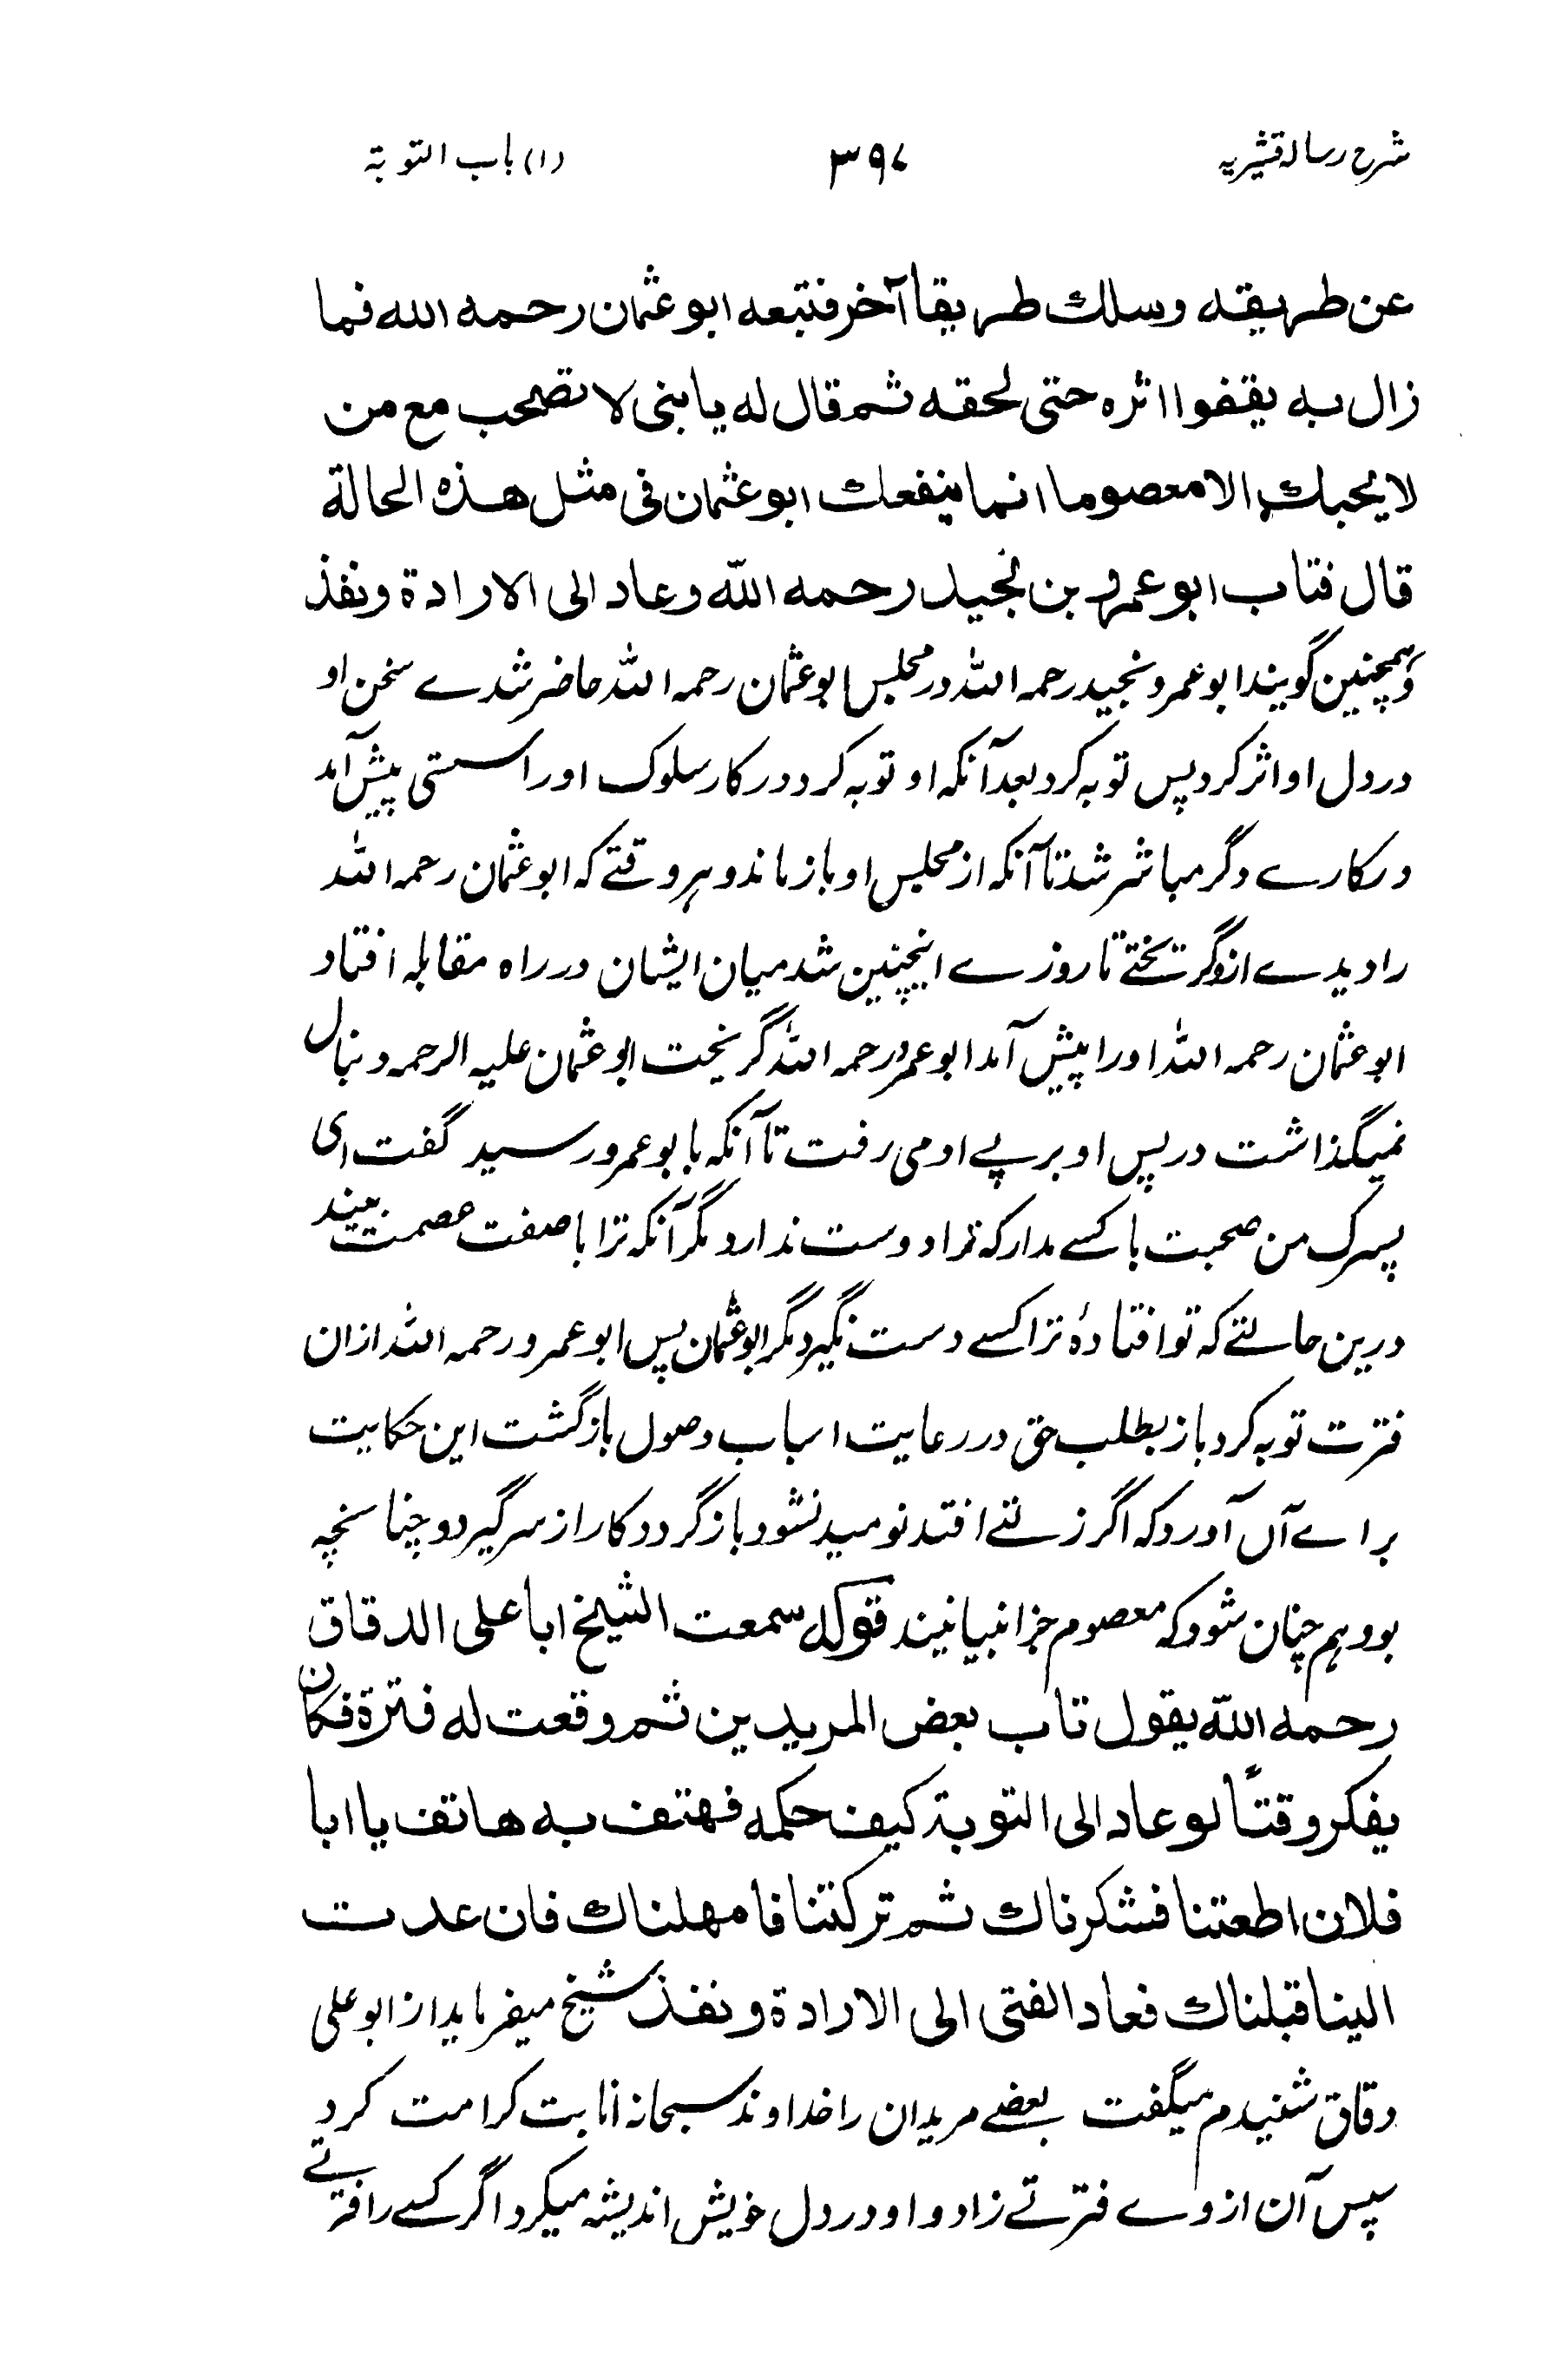 شرح رسالہ قشیریہ ۳۹۷ (۱) باب التوبۃ
عن طریقہ وسلک طریقا آخر فتبعہ ابو عثمان رحمہ اللہ فما
زال بہ یقفوا اثرہ حتی لحقہ ثم قال لہ یا بنی لا تصحب مع من
لا یحبک الا معصوما انما ینفعک ابو عثمان فی مثل ھذہ الحالۃ
قال فتاب ابو عمرو بن نجید رحمہ اللہ وعاد الی الارادۃ ونفذ
وہمچنین گویند ابو عمرو نجید رحمہ اللہ در مجلس ابو عثمان رحمہ اللہ حاضر شدے سخن او
در دل او اثر کرد پس توبہ کرد بعد آنکہ او توبہ کرد در کار سلوک اورا سستی پیش آمد
در کارے دگر مباشر شد تا آنکہ از مجلس او باز ماند و ہر وقتے کہ ابو عثمان رحمہ اللہ
را دیدے از و گریختے تا روزے اینچنین شد میان ایشان در راہ مقابلہ افتاد
ابو عثمان رحمہ اللہ اورا پیش آمد ابو عمرو رحمہ اللہ گریخت ابو عثمان علیہ الرحمہ دنبال
نمیگذاشت در پس او بر پے او می رفت تا آنکہ با بو عمرو رسید گفت ای
پسرک من صحبت با کسے مدار کہ ترا دوست ندارد مگر آنکہ ترا با صفت عصمت بیند
درین حالتے کہ تو افتادۂ ترا کسے دست نگیرد مگر ابو عثمان پس ابو عمرو رحمہ اللہ ازان
فترت توبہ کرد باز بطلب حق در رعایت اسباب وصول بازگشت این حکایت
براے آں آورد کہ اگر زلتے افتد نومید نشود باز گردد کار از سر گیرد و چنانچہ
بود ہم چنان شود کہ معصوم جز انبیا نیند قولہ سمعت الشیخ ابا علی الدقاق
رحمہ اللہ یقول تاب بعض المریدین ثم وقعت لہ فترۃ فکان
یفکر وقتاً لو عاد الی التوبۃ کیف حکمہ فھتف بہ ھاتف یا ابا
فلان اطعتنا فشکرناک ثم ترکتنا فامھلناک فان عدت
الینا قبلناک فعاد الفتی الی الارادۃ ونفذ شیخ میفرماید از ابو علی
دقاق شنیدم میگفت بعضے مریدان را خداوند سبحانہ انابت کرامت کرد
سپس آن از وے فترتے زاد و او در دل خویش اندیشہ میکرد اگر کسے را فترتے